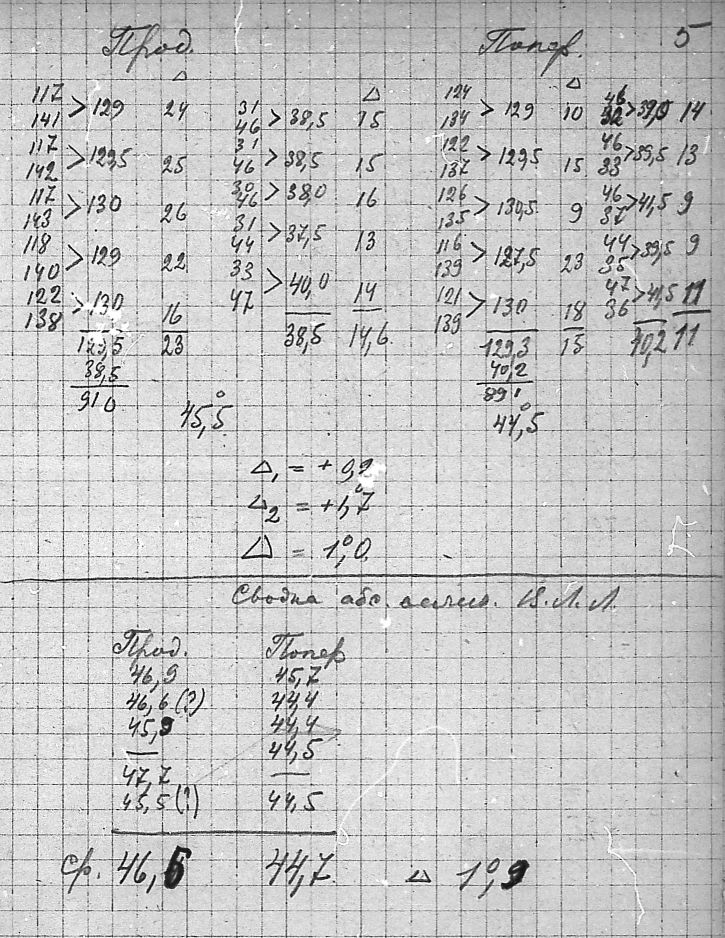 Прод. Попер. 5
Δ Δ Δ
117 124 46
141 > 129 24 31 46 > 38,5 15 134 > 129 10 32 > 39,0 14
117 122 46
142 > 129,5 25 31 46 > 38,5 15 137 > 129,5 15 33 > 39,5 13
117 126 46
143 > 130 26 30 46 > 38,0 16 135 > 130,5 9 37 > 41,5 9
118 116 44
140 > 129 22 31 44 > 37,5 13 139 > 127,5 23 35 > 39,5 9
122 121 47
138 > 130 16 33 47 > 40,0 14 139 > 130 18 36 > 41,5 11
129,5 23 38,5 14,6 129,3 15 40,2 11
38,5 40,2
91 0 45,5° 89 1 44,5°
Δ₁ = + 0,2
Δ₂ = +1,°7
Δ = 1,°0
Сводка абс. велич. В. Л. Л.
Прод. Попер
46,9 45,7
46,6 (?) 44,4
45,9 44,4
— 44,5
47,7 —
45,5 (?) 44,5
ср. 46,6 44,7 Δ 1°,9